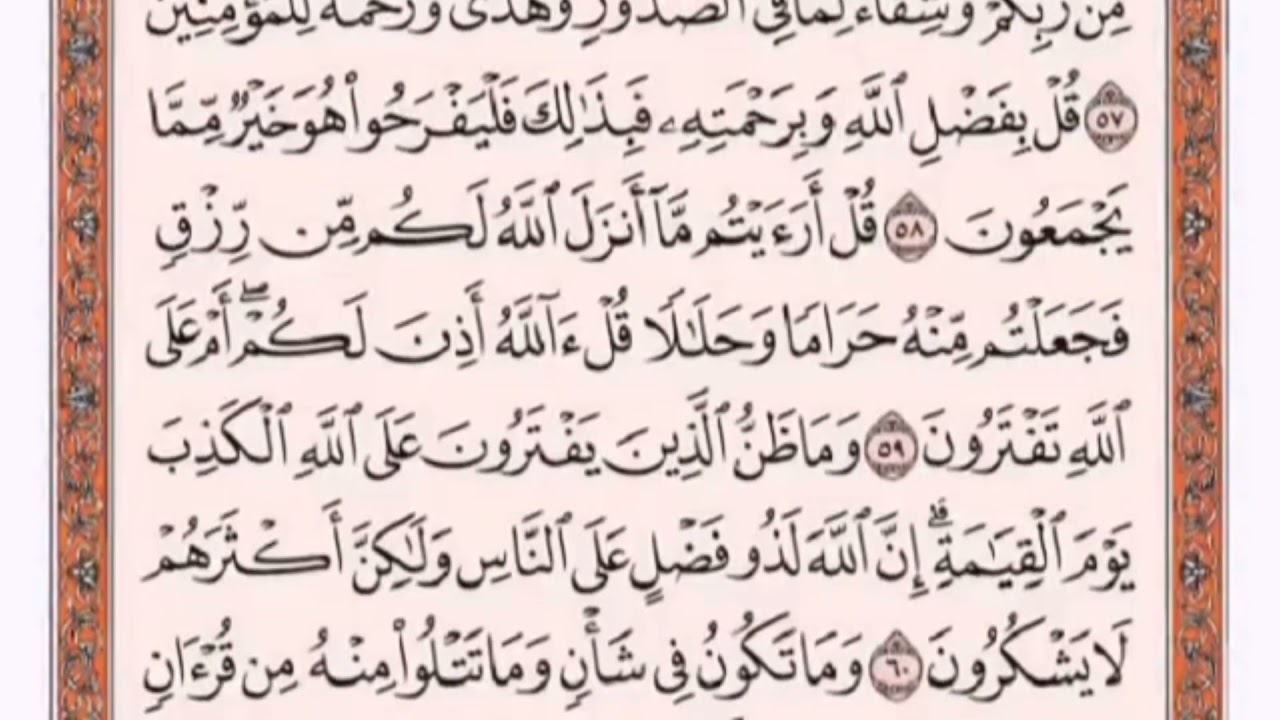 مِّن رَّبِّكُمْ وَشِفَاءٌ لِّمَا فِي الصُّدُورِ وَهُدًى وَرَحْمَةٌ لِّلْمُؤْمِنِينَ
٥٧ قُلْ بِفَضْلِ ٱللَّهِ وَبِرَحْمَتِهِۦ فَبِذَٰلِكَ فَلْيَفْرَحُوا۟ هُوَ خَيْرٌ مِّمَّا
يَجْمَعُونَ ٥٨ قُلْ أَرَءَيْتُم مَّآ أَنزَلَ ٱللَّهُ لَكُم مِّن رِّزْقٍ
فَجَعَلْتُم مِّنْهُ حَرَامًا وَحَلَٰلًا قُلْ ءَآللَّهُ أَذِنَ لَكُمْ ۖ أَمْ عَلَى
ٱللَّهِ تَفْتَرُونَ ٥٩ وَمَا ظَنُّ ٱلَّذِينَ يَفْتَرُونَ عَلَى ٱللَّهِ ٱلْكَذِبَ
يَوْمَ ٱلْقِيَٰمَةِ ۗ إِنَّ ٱللَّهَ لَذُو فَضْلٍ عَلَى ٱلنَّاسِ وَلَٰكِنَّ أَكْثَرَهُمْ
لَا يَشْكُرُونَ ٦٠ وَمَا تَكُونُ فِى شَأْنٍ وَمَا تَتْلُوا۟ مِنْهُ مِن قُرْءَانٍ